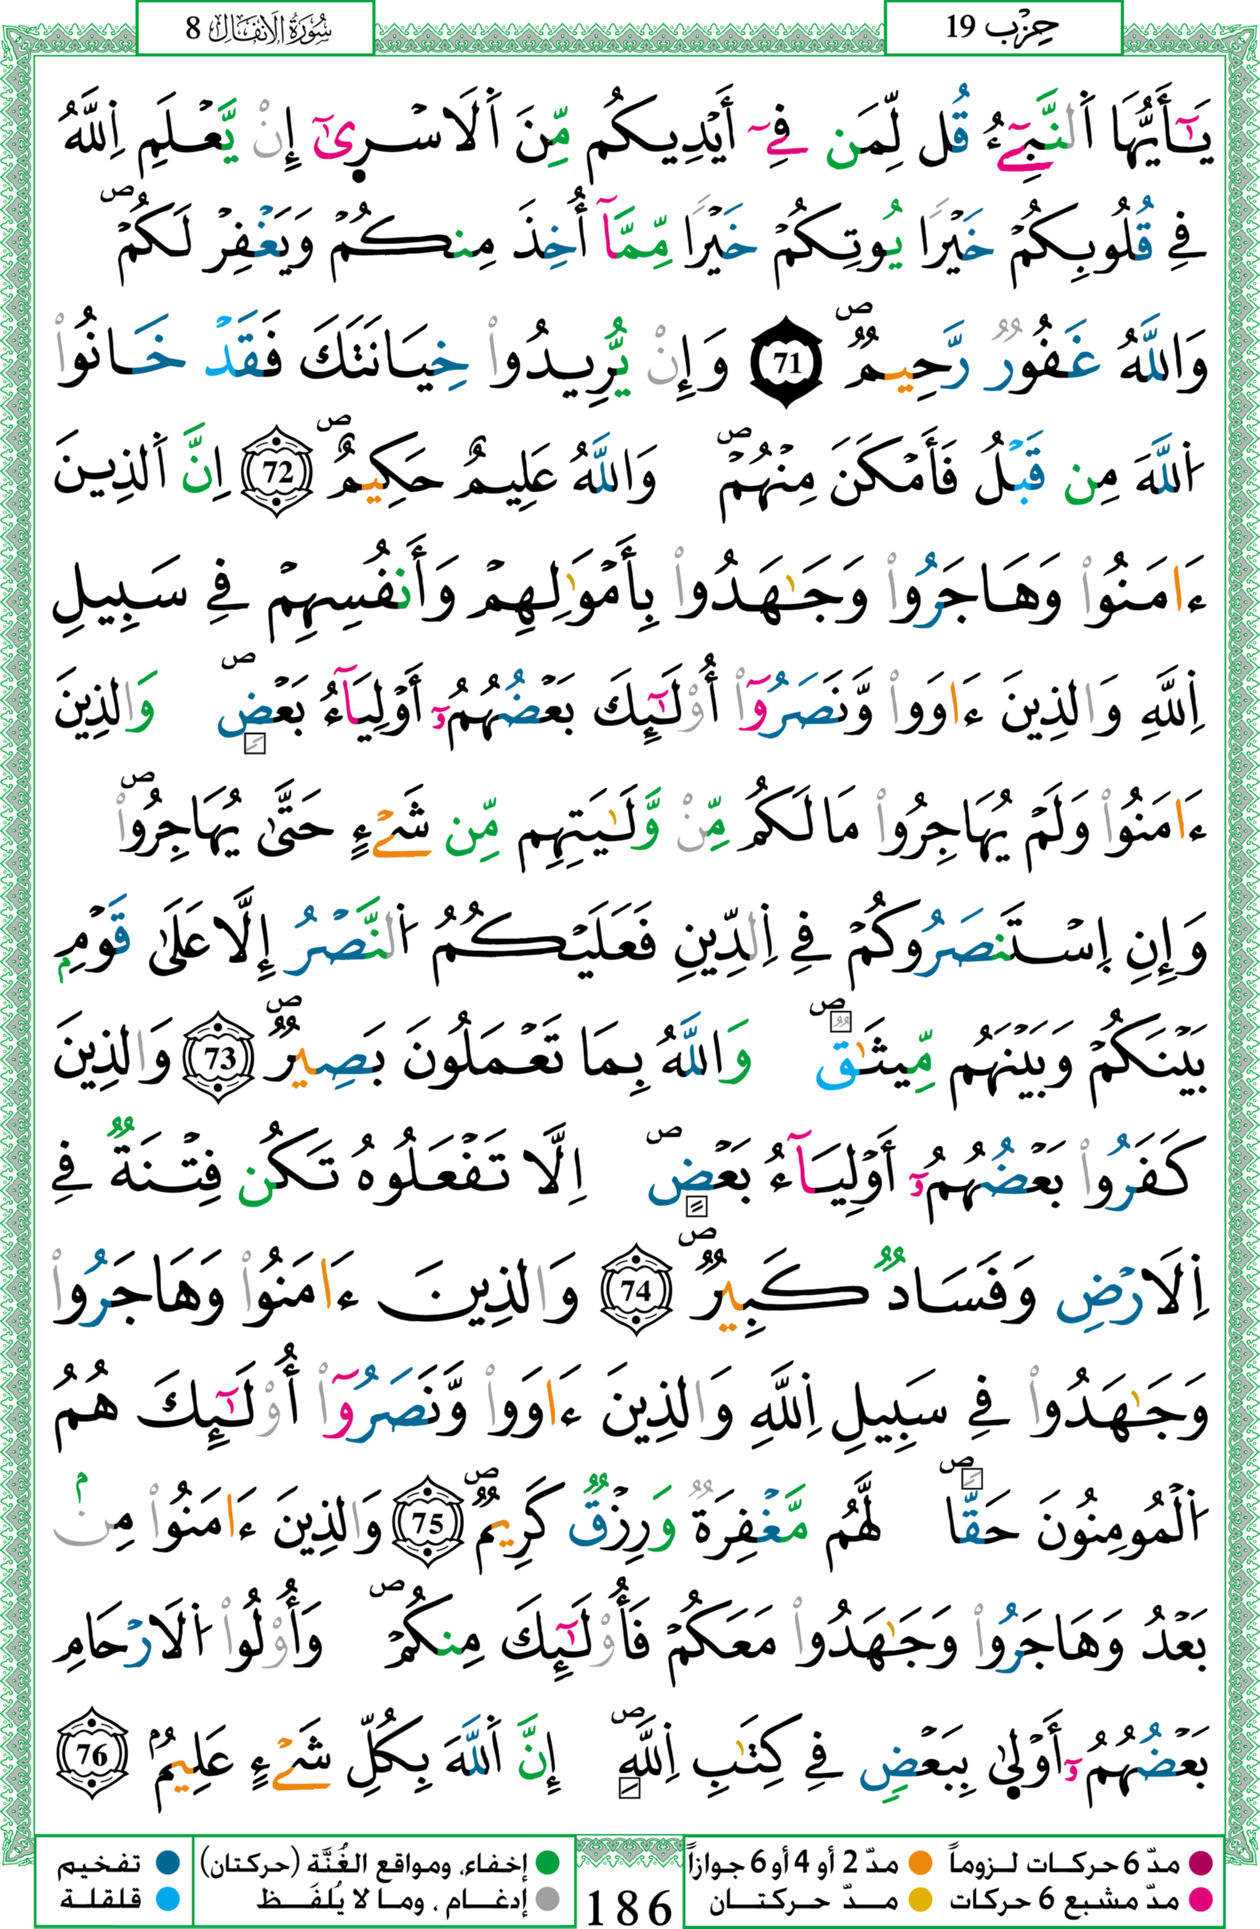 حِزْب 19
سُورَةُ الْأَنفَالِ 8
يَٰٓأَيُّهَا اَ۬لنَّبِےٓءُ قُل لِّمَن فِےٓ أَيْدِيكُم مِّنَ اَ۬لَاسْر۪يٰٓ إِنْ يَّعْلَمِ اِ۬للَّهُ
فِے قُلُوبِكُمْ خَيْراٗ يُوتِكُمْ خَيْراٗ مِّمَّآ أُخِذَ مِنكُمْ وَيَغْفِرْ لَكُمْۖ
وَاللَّهُ غَفُورٞ رَّحِيمٞۖ 71 وَإِنْ يُّرِيدُواْ خِيَانَتَكَ فَقَدْ خَانُواْ
اُ۬للَّهَ مِن قَبْلُ فَأَمْكَنَ مِنْهُمْۖ وَاللَّهُ عَلِيمٌ حَكِيمٌۖ 72 اِنَّ اَ۬لذِينَ
ءَامَنُواْ وَهَاجَرُواْ وَجَٰهَدُواْ بِأَمْوَٰلِهِمْ وَأَنفُسِهِمْ فِے سَبِيلِ
اِ۬للَّهِ وَالذِينَ ءَاوَواْ وَّنَصَرُوٓاْ أُوْلَٰٓئِكَ بَعْضُهُمُۥٓ أَوْلِيَآءُ بَعْضٖۖ وَالذِينَ
ءَامَنُواْ وَلَمْ يُهَاجِرُواْ مَا لَكُم مِّنْ وَّلَٰيَتِهِم مِّن شَےْءٍ حَتَّىٰ يُهَاجِرُواْۖ
وَإِنِ اِ۪سْتَنصَرُوكُمْ فِے اِ۬لدِّينِ فَعَلَيْكُمُ اُ۬لنَّصْرُ إِلَّا عَلَىٰ قَوْمِۢ
بَيْنَكُمْ وَبَيْنَهُم مِّيثَٰقٞۖ وَاللَّهُ بِمَا تَعْمَلُونَ بَصِيرٞۖ 73 وَالذِينَ
كَفَرُواْ بَعْضُهُمُۥٓ أَوْلِيَآءُ بَعْضٍۖ اِلَّا تَفْعَلُوهُ تَكُن فِتْنَةٞ فِے
اِ۬لَارْضِ وَفَسَادٞ كَبِيرٞۖ 74 وَالذِينَ ءَامَنُواْ وَهَاجَرُواْ
وَجَٰهَدُواْ فِے سَبِيلِ اِ۬للَّهِ وَالذِينَ ءَاوَواْ وَّنَصَرُوٓاْ أُوْلَٰٓئِكَ هُمُ
اُ۬لْمُومِنُونَ حَقّاٗۖ لَّهُم مَّغْفِرَةٞ وَرِزْقٞ كَرِيمٞۖ 75 وَالذِينَ ءَامَنُواْ مِنۢ
بَعْدُ وَهَاجَرُواْ وَجَٰهَدُواْ مَعَكُمْ فَأُوْلَٰٓئِكَ مِنكُمْۖ وَأُوْلُواْ اُ۬لَارْحَامِ
بَعْضُهُمُۥٓ أَوْل۪يٰ بِبَعْضٖ فِے كِتَٰبِ اِ۬للَّهِۖ إِنَّ اَ۬للَّهَ بِكُلِّ شَےْءٍ عَلِيمُۢ 76
مدّ 6 حركات لزوماً مدّ 2 أو 4 أو 6 جوازاً
مدّ مشبع 6 حركات مدّ حركتان
186
إخفاء، ومواقع الغُنَّة (حركتان) تفخيم
إدغام ، وما لا يُلفَظ قلقلة